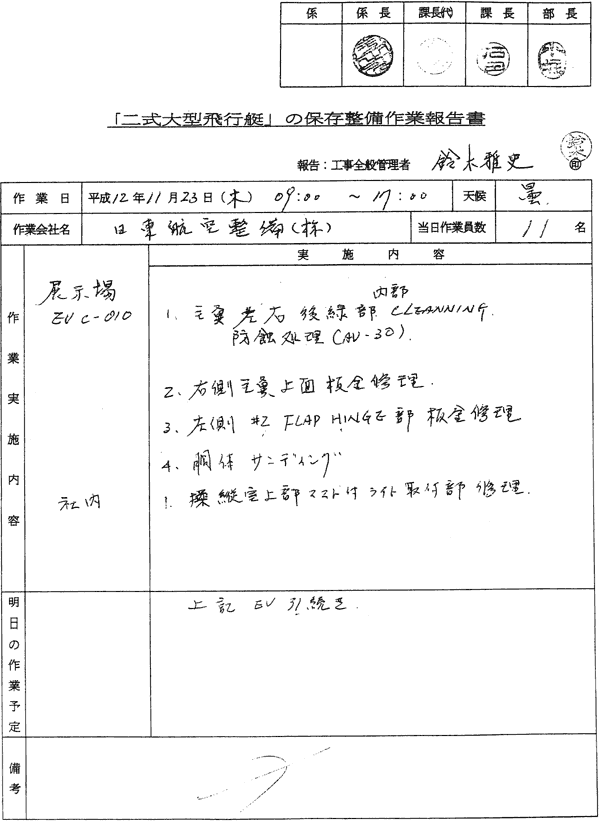 係 係長 課長代 課長 部長
「二式大型飛行艇」の保存整備作業報告書
報告:工事全般管理者 鈴木雅史
作業日 平成12年11月23日(木) 09:00 ~ 17:00 天候 曇
作業会社名 日東航空整備(株) 当日作業員数 11名
作業実施内容
実施内容
展示場
EV C-010
内部
1. 主翼左右後縁部 CLEANNING.
防蝕処理(AV-30).
2. 右側主翼上面板金修理.
3. 左側 #2 FLAP HINGE部 板金修理
4. 胴体サンディング
社内
1. 操縦室上部マスト付ライト取付部修理.
明日の作業予定
上記 EV 引続き.
備考